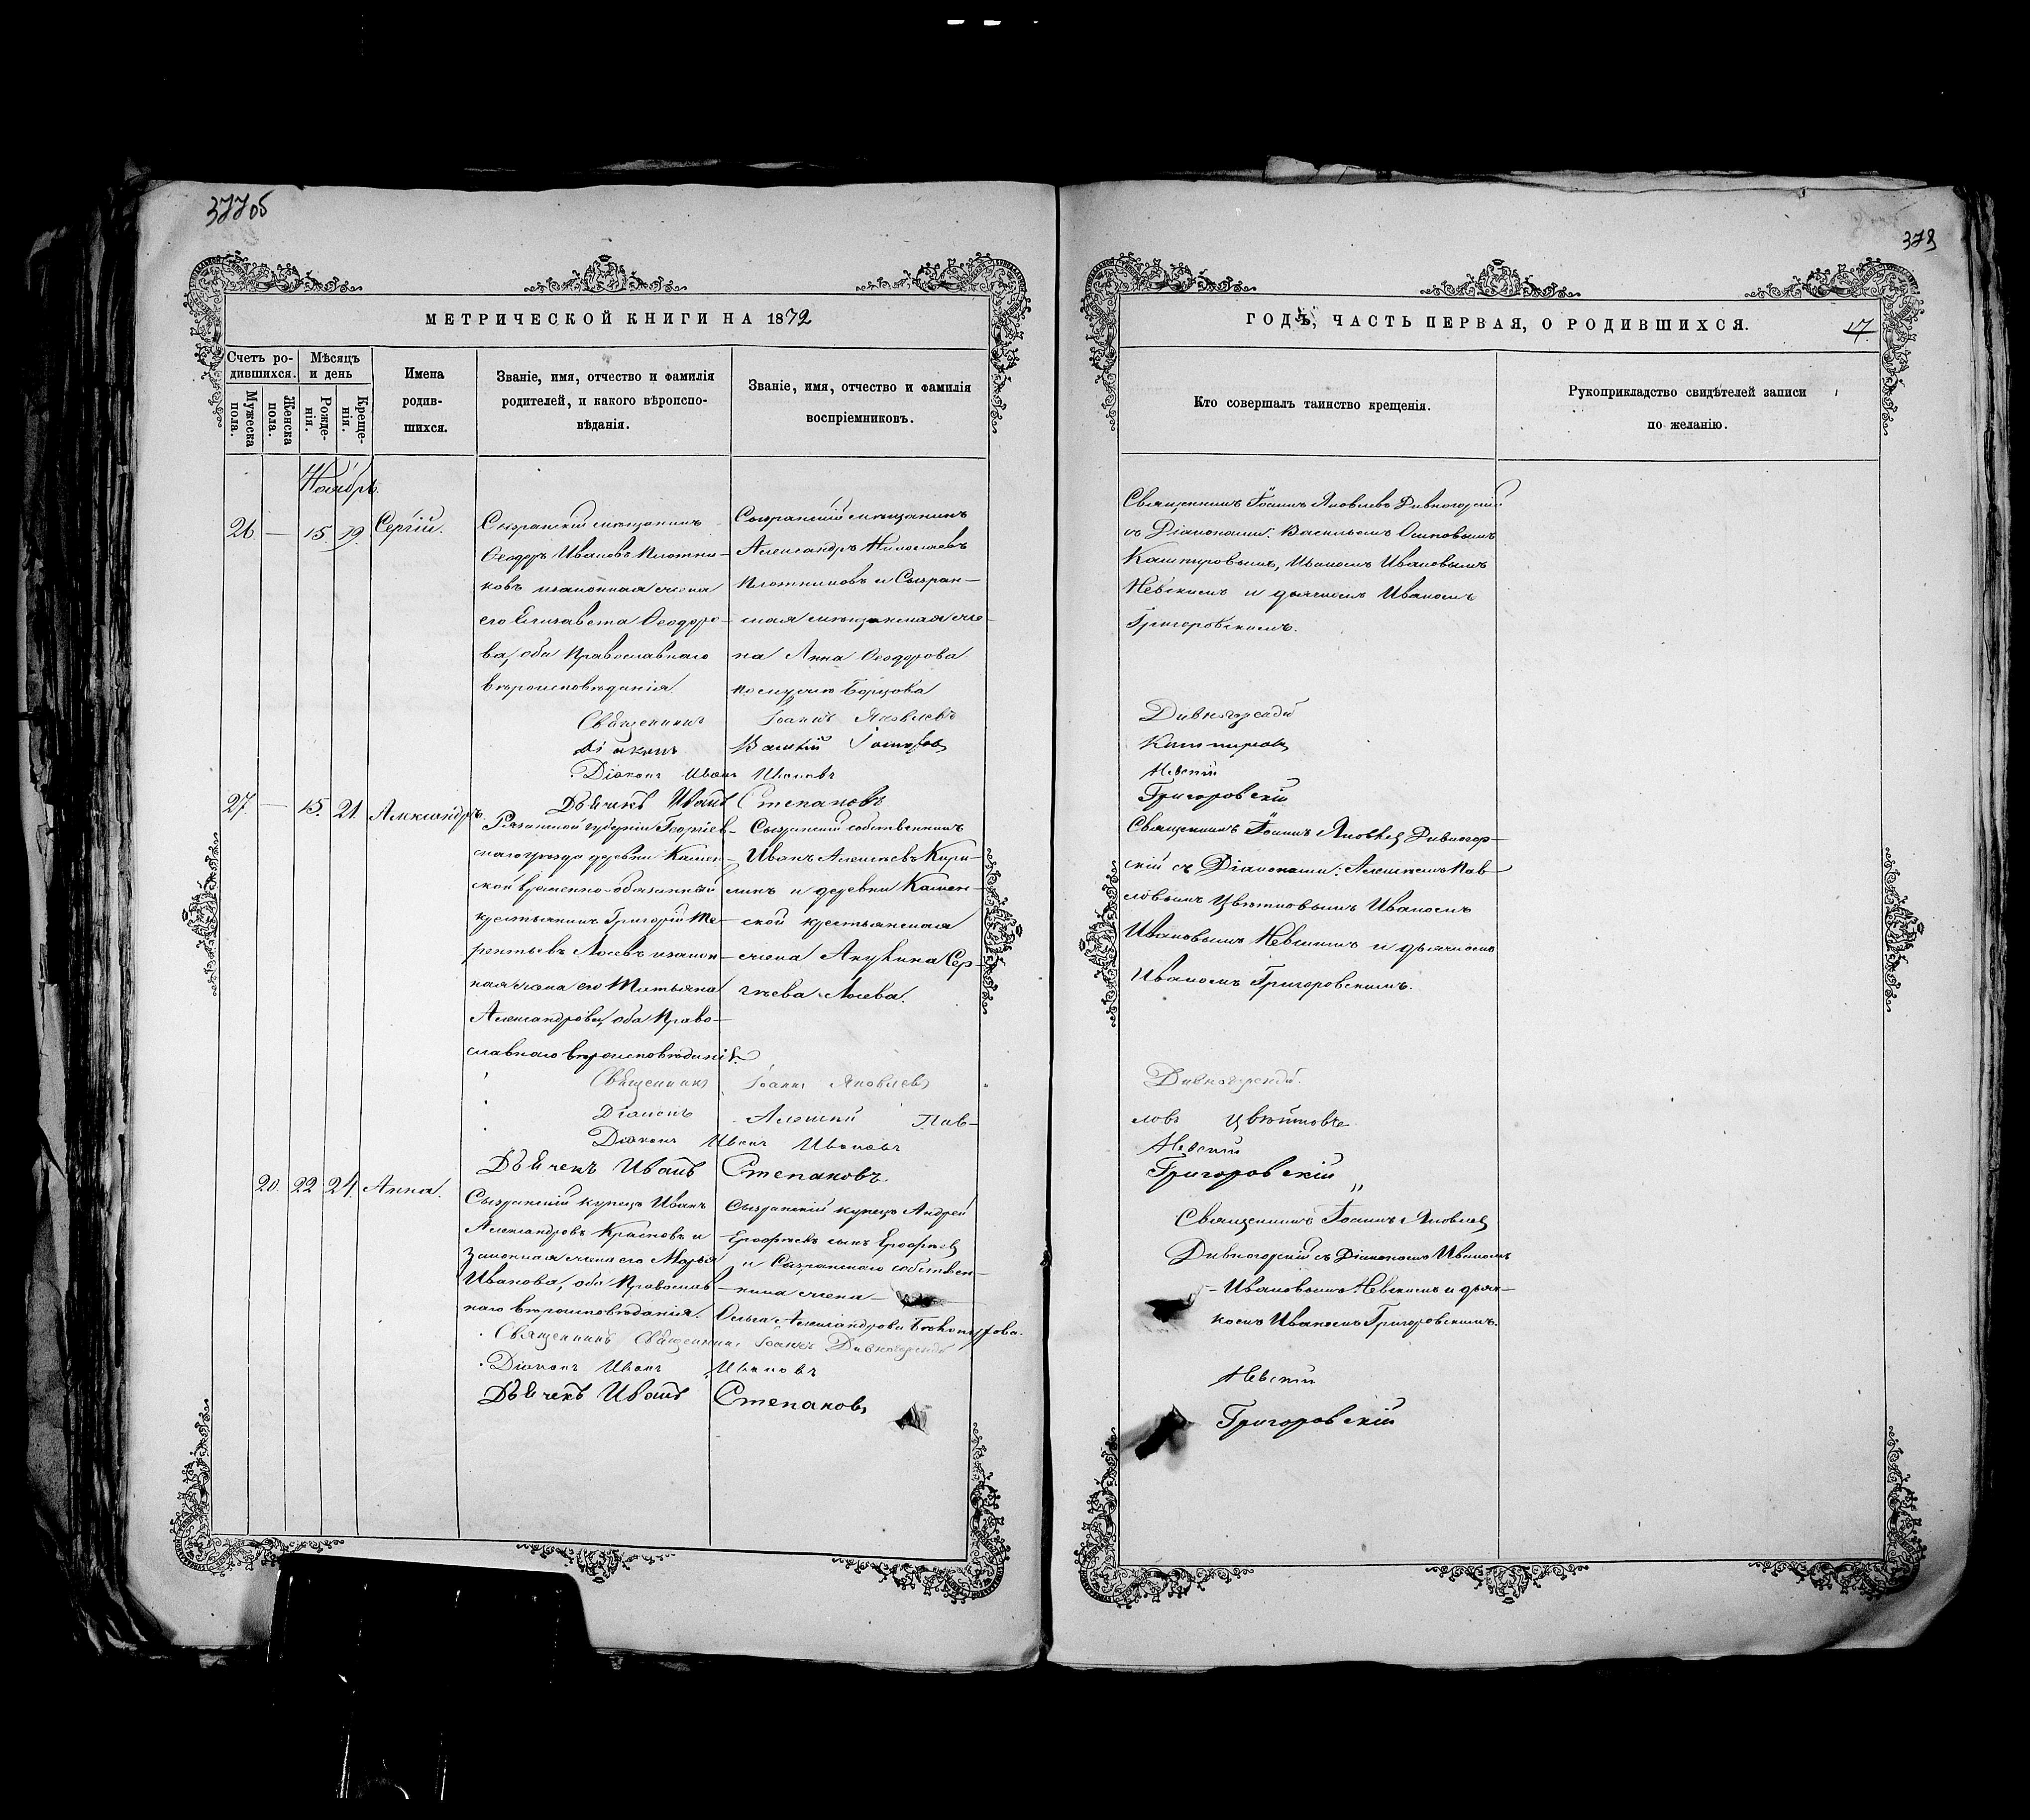 377об
МЕТРИЧЕСКОЙ КНИГИ НА 1872
Счетъ ро-
дившихся.
Мужеска
пола.
Женска
пола.
Мѣсяцъ
и день
Рожде-
нія.
Креще-
нія.
Имена
родив-
шихся.
Званіе, имя, отчество и фамилія
родителей, и какого вѣроиспо-
вѣданія.
Званіе, имя, отчество и фамилія
воспріемниковъ.
Ноябрь.
26 — 15. 19. Сергій.
Сызранскій мѣщанинъ
Ѳеодоръ Ивановъ Плотни-
ковъ и законная жена
его Елизавета Ѳеодоро-
ва, оба Православнаго
вѣроисповѣданія
Сызранскій мѣщанинъ
Александръ Николаевъ
Плотниковъ и Сызран-
ская мѣщанская же-
на Анна Ѳеодорова
по мужѣ
Священникъ Іоаннъ Яковлевъ
Діаконъ Василій
Діаконъ Иванъ Ивановъ
Дьячекъ Иванъ Степановъ
27. — 15. 21. Александръ.
губерніи
скаго уѣзда деревни Камен-
ской временно-обязанный
крестьянинъ Григорій Те-
рентьевъ Лосевъ и закон-
ная жена его Татьяна
Александрова, оба Право-
славнаго вѣроисповѣданія.
Сызранскій собственникъ
Иванъ Алексѣевъ Кири-
линъ и деревни Камен-
ской крестьянская
жена Акулина Сер-
гѣева Лосева.
Священникъ Іоаннъ Яковлевъ
Діаконъ Алексѣй Пав-
Діаконъ Иванъ Ивановъ
Дьячекъ Иванъ Степановъ
20. 22 24. Анна.
Сызранскій купецъ Иванъ
Александровъ Красновъ и
законная жена его Марья
Иванова, оба Православ-
наго вѣроисповѣданія.
Сызранскій купецъ Андрей
Ерофѣевъ сынъ Ерофѣевъ
и Сызранскаго собствен-
ника жена —
Ольга Александрова
Священникъ Священникъ Іоаннъ Дивногорскій
Діаконъ Иванъ Ивановъ
Дьячекъ Иванъ Степановъ
ГОДЪ, ЧАСТЬ ПЕРВАЯ, О РОДИВШИХСЯ.
17.
Кто совершалъ таинство крещенія.
Рукоприкладство свидѣтелей записи
по желанію.
Священникъ Іоаннъ Яковлевъ Дивногорскій
съ Діаконами: Васильемъ Осиповымъ
Каштировымъ, Иваномъ Ивановымъ
Невскимъ и дьячкомъ Иваномъ
Григоровскимъ.
Дивногорскій
Каштировъ
Невскій
Григоровскій
Священникъ Іоаннъ Яковлевъ Дивногор-
скій съ Діаконами: Алексѣемъ Пав-
ловымъ Цвѣтковымъ Иваномъ
Ивановымъ Невскимъ и дьячкомъ
Иваномъ Григоровскимъ.
Дивногорскій.
ловъ Цвѣтковъ
Невскій
Григоровскій
Священникъ Іоаннъ Яковлевъ
Дивногорскій съ Діакономъ Иваномъ
— Ивановымъ Невскимъ и дьяч-
комъ Иваномъ Григоровскимъ.
Невскій
Григоровскій